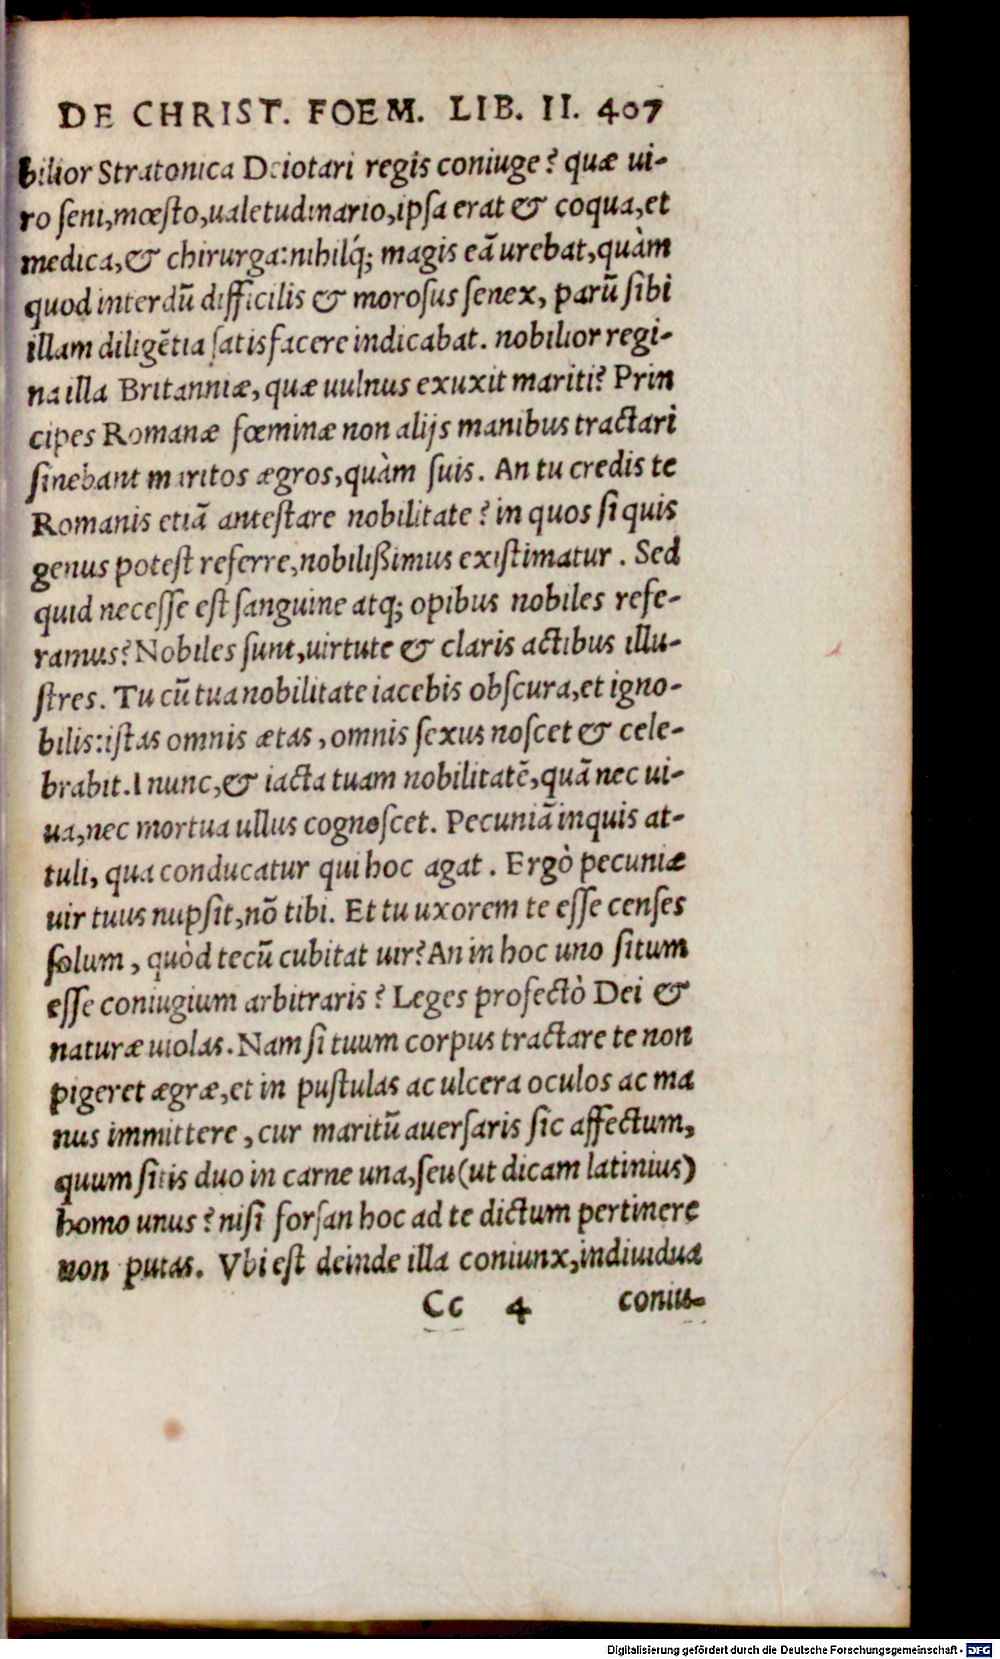 DE CHRIST. FOEM. LIB. II. 407
bilior Stratonica Deiotari regis coniuge? quæ ui-
ro ſeni, mœsto, ualetudinario, ipſa erat & coqua, et
medica, & chirurga: nihilq́; magis eã urebat, quàm
quod interdũ difficilis & moroſus ſenex, parũ ſibi
illam diligẽtia ſatisfacere indicabat. nobilior regi-
na illa Britanniæ, quæ uulnus exuxit mariti? Prin
cipes Romanæ fœminæ non alijs manibus tractari
ſinebant maritos ægros, quàm ſuis. An tu credis te
Romanis etiã anteſtare nobilitate? in quos ſi quis
genus poteſt referre, nobilißimus exiſtimatur. Sed
quid neceſſe eſt ſanguine atq; opibus nobiles refe-
ramus? Nobiles ſunt, uirtute & claris actibus illu-
ſtres. Tu cũ tua nobilitate iacebis obſcura, et igno-
bilis: iſtas omnis ætas, omnis ſexus noſcet & cele-
brabit. I nunc, & iacta tuam nobilitatẽ, quã nec ui-
ua, nec mortua ullus cognoſcet. Pecuniã inquis at-
tuli, qua conducatur qui hoc agat. Ergò pecuniæ
uir tuus nupſit, nõ tibi. Et tu uxorem te eſſe cenſes
ſolum, quòd tecũ cubitat uir? An in hoc uno ſitum
eſſe coniugium arbitraris? Leges profectò Dei &
naturæ uiolas. Nam ſi tuum corpus tractare te non
pigeret ægræ, et in puſtulas ac ulcera oculos ac ma
nus immittere, cur maritũ auerſaris ſic affectum,
quum ſitis duo in carne una, ſeu (ut dicam latinius)
homo unus? niſi forſan hoc ad te dictum pertinere
non putas. Vbi eſt deinde illa coniunx, indiuidua
Cc 4 coniu-
Digitalisierung gefördert durch die Deutsche Forschungsgemeinschaft - DFG